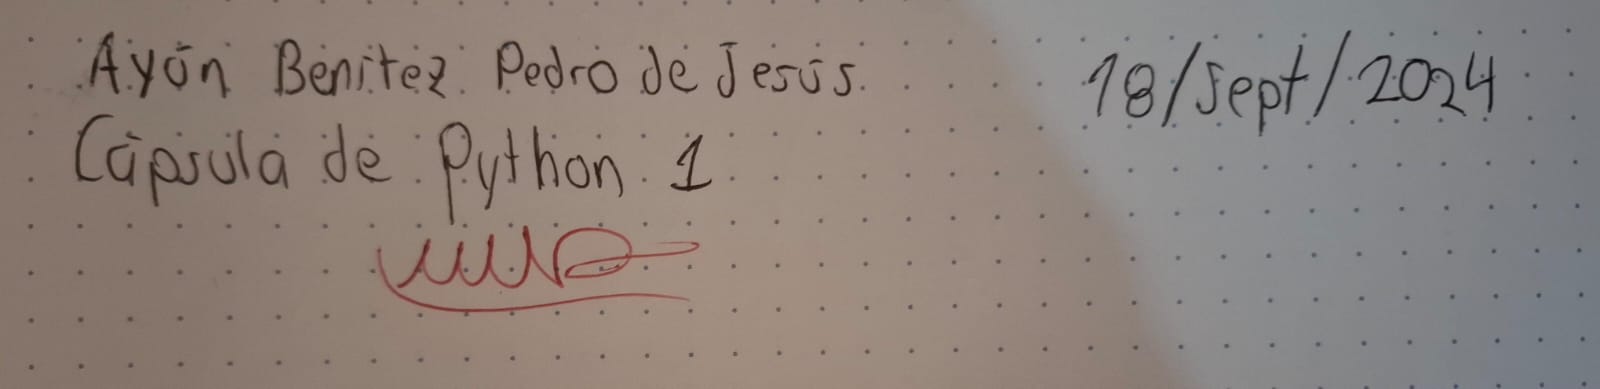 Ayón Benitez Pedro de Jesús 18/Sept/2024
Cápsula de Python 1